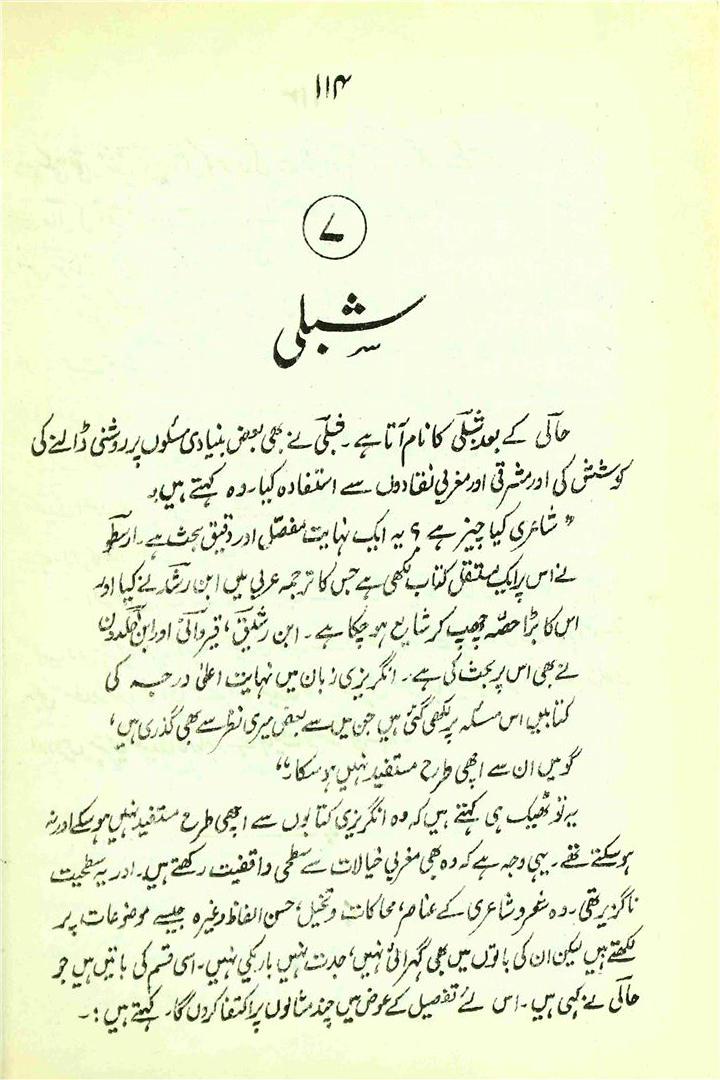 ۱۱۴
۷
شبلی
حالی کے بعد شبلی کا نام آتا ہے۔ شبلی نے بھی بعض بنیادی مسئلوں پر روشنی ڈالنے کی
کوشش کی اور مشرقی اور مغربی نقادوں سے استفادہ کیا۔ وہ کہتے ہیں:
"شاعری کیا چیز ہے؟ یہ ایک نہایت مفصل اور دقیق بحث ہے۔ ارسطو
نے اس پر ایک مستقل کتاب لکھی ہے جس کا ترجمہ عربی میں ابن رشد نے کیا اور
اس کا بڑا حصہ چھپ کر شایع ہو چکا ہے۔ ابن رشیق، قیروانی اور ابن خلدون
نے بھی اس پر بحث کی ہے۔ انگریزی زبان میں نہایت اعلیٰ درجہ کی
کتابیں اس مسئلہ پر لکھی گئی ہیں جن میں سے بعض میری نظر سے بھی گذری ہیں،
گو میں ان سے اچھی طرح مستفید نہیں ہو سکا۔"
یہ تو ٹھیک ہی کہتے ہیں کہ وہ انگریزی کتابوں سے اچھی طرح مستفید نہیں ہو سکے اور نہ
ہو سکتے تھے۔ یہی وجہ ہے کہ وہ بھی مغربی خیالات سے سطحی واقفیت رکھتے ہیں۔ اور یہ سطحیت
ناگزیر تھی۔ وہ شعر و شاعری کے عناصر، محاکات و تخیل، حسن الفاظ وغیرہ جیسے موضوعات پر
لکھتے ہیں لیکن ان کی باتوں میں بھی گہرائی نہیں، جدت نہیں باریکی نہیں۔ اسی قسم کی باتیں ہیں جو
حالی نے کہی ہیں۔ اس لئے تفصیل کے عوض میں چند مثالوں پر اکتفا کروں گا۔ کہتے ہیں:۔